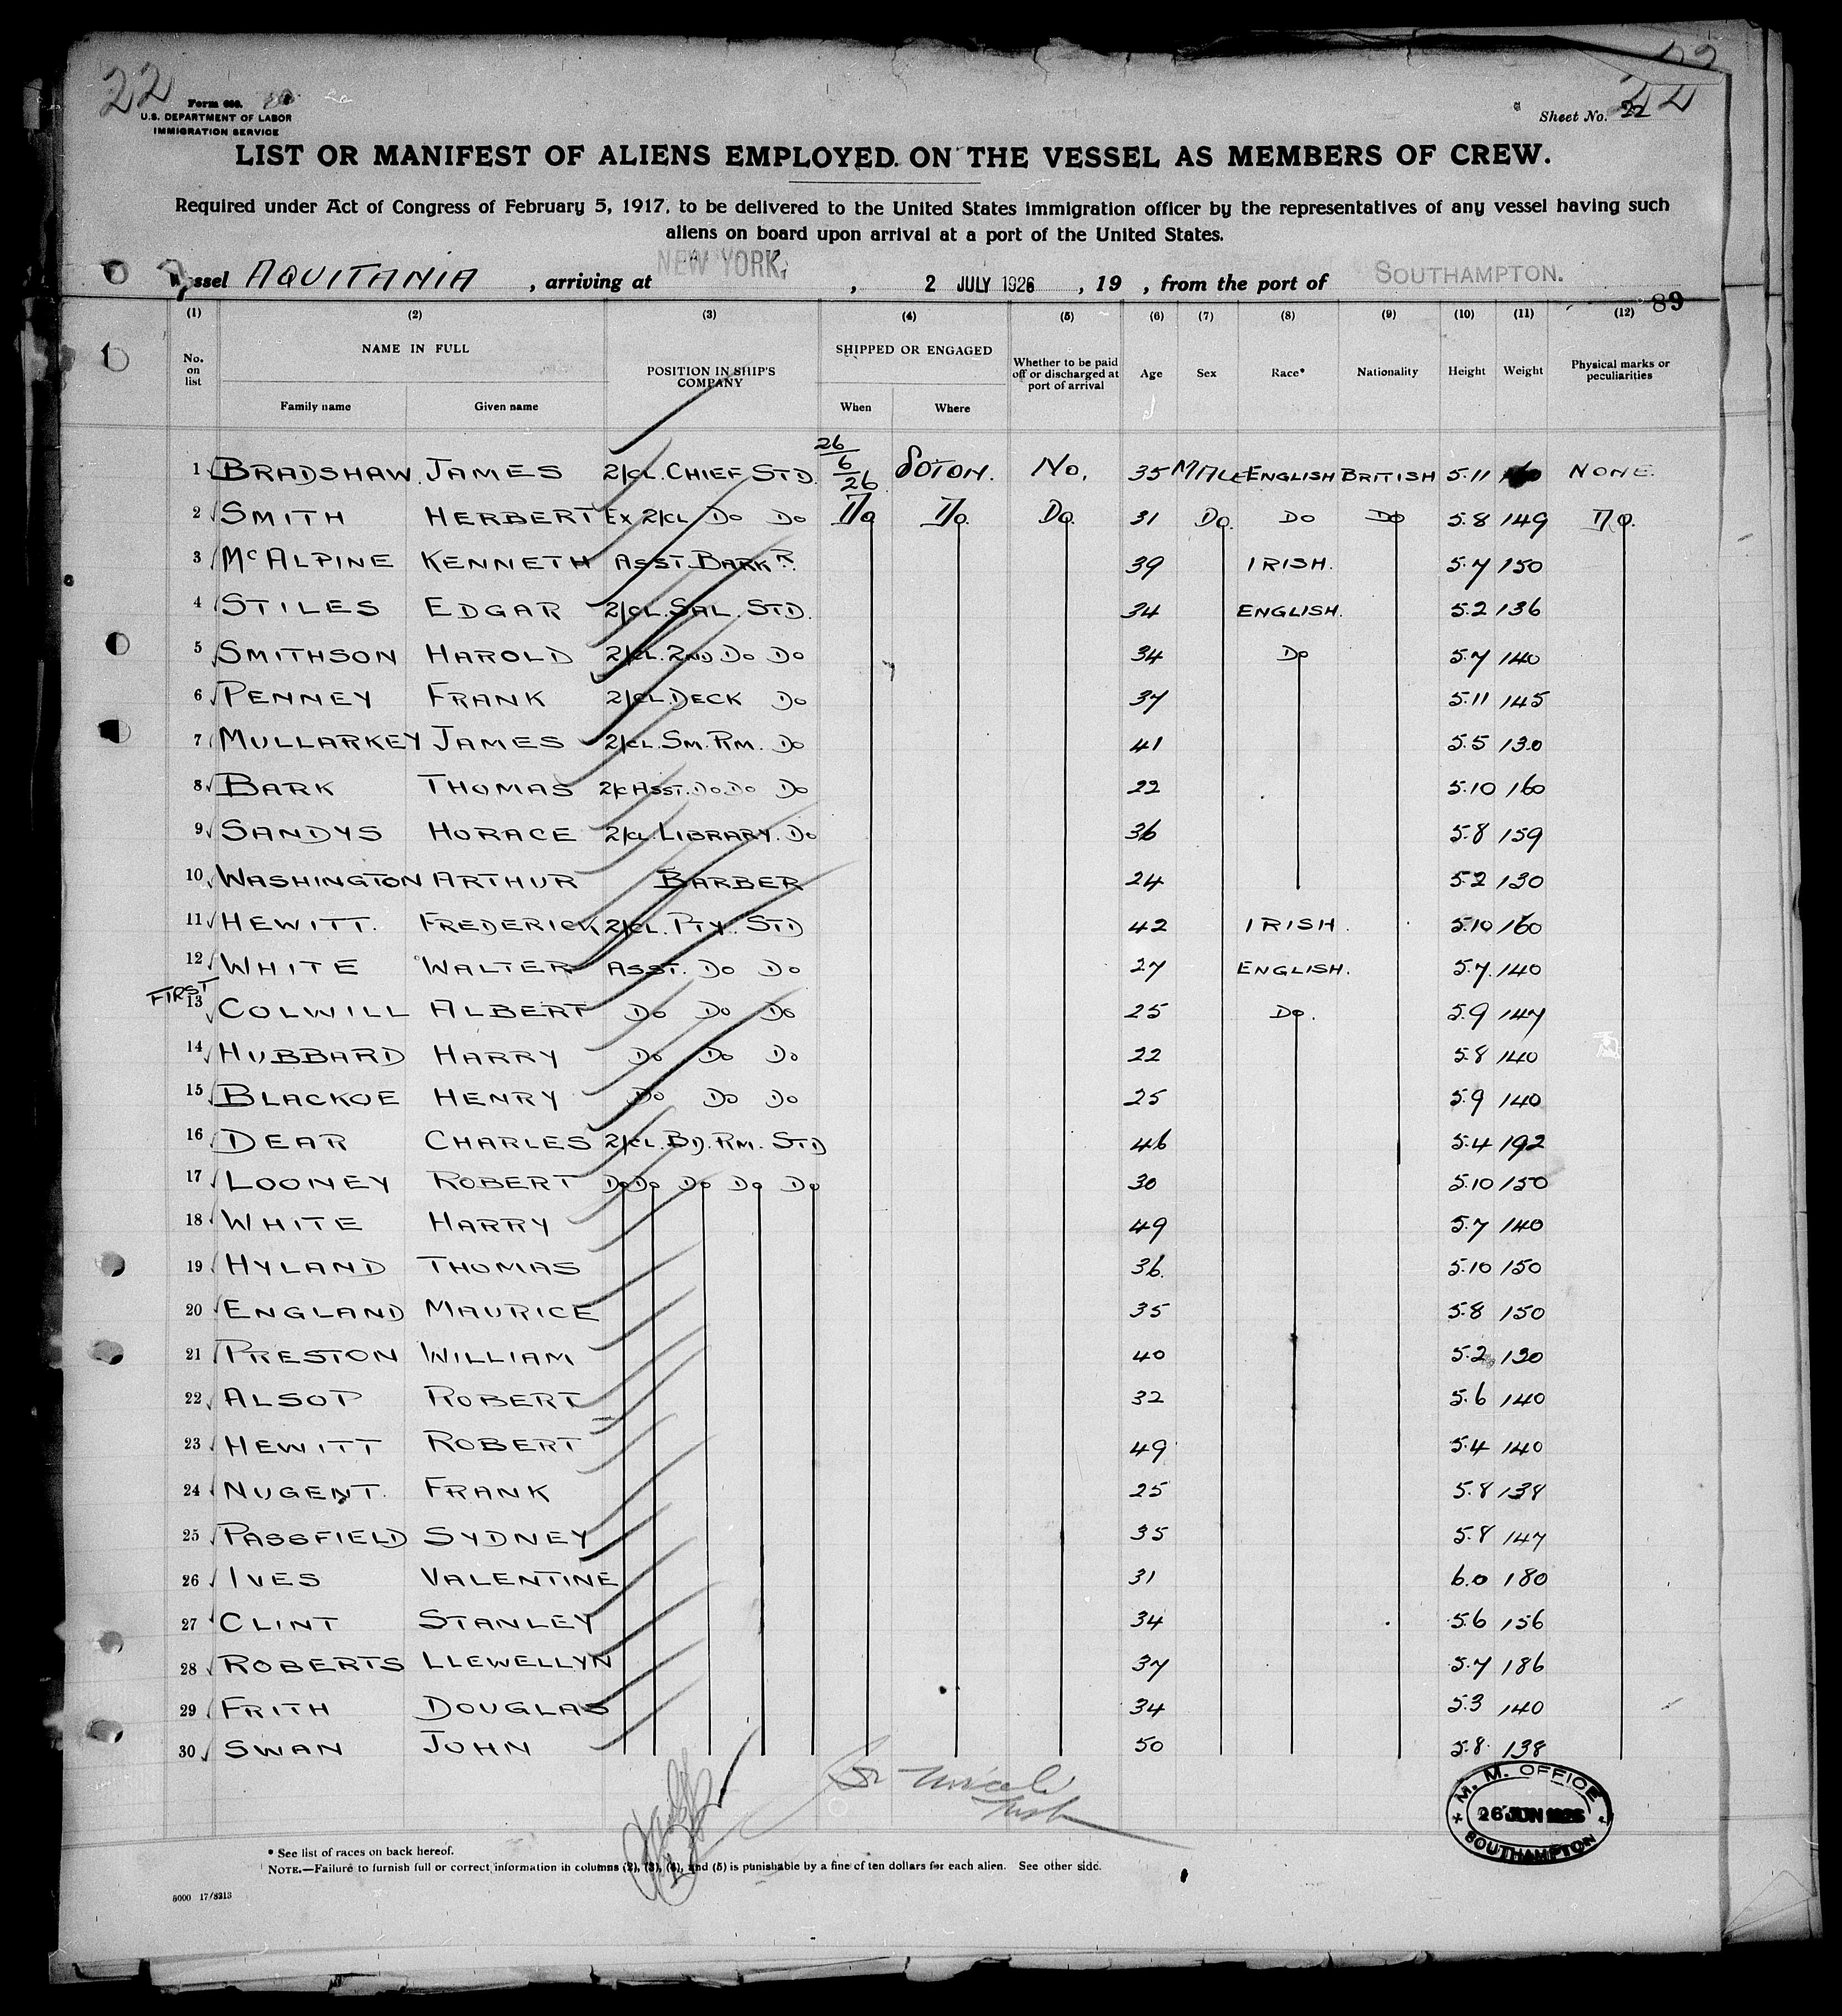 22
Form 680.
U.S. DEPARTMENT OF LABOR
IMMIGRATION SERVICE
Sheet No. 22
LIST OR MANIFEST OF ALIENS EMPLOYED ON THE VESSEL AS MEMBERS OF CREW.
Required under Act of Congress of February 5, 1917, to be delivered to the United States immigration officer by the representatives of any vessel having such
aliens on board upon arrival at a port of the United States.
Vessel AQUITANIA , arriving at NEW YORK, , 2 JULY 1926 , 19 , from the port of SOUTHAMPTON.
89
(1) (2) (3) (4) (5) (6) (7) (8) (9) (10) (11) (12)
No. on list NAME IN FULL Family name Given name POSITION IN SHIP'S COMPANY SHIPPED OR ENGAGED When Where Whether to be paid off or discharged at port of arrival Age Sex Race* Nationality Height Weight Physical marks or peculiarities
1 BRADSHAW JAMES 2/CL. CHIEF STD. 26/6/26 SOTON. NO. 35 MALE ENGLISH BRITISH 5.11 NONE.
2 SMITH HERBERT EX 2/CL DO DO DO DO. DO. 31 DO. DO DO 5.8 149 DO.
3 McALPINE KENNETH ASST. BARKR. 39 IRISH. 5.7 150
4 STILES EDGAR 2/CL. SAL. STD. 34 ENGLISH. 5.2 136
5 SMITHSON HAROLD 2/CL. 2ND DO DO 34 DO 5.7 140
6 PENNEY FRANK 2/CL. DECK DO 37 5.11 145
7 MULLARKEY JAMES 2/CL. SM. RM. DO 41 5.5 130
8 BARK THOMAS 2/C ASST. DO DO DO 22 5.10 160
9 SANDYS HORACE 2/CL. LIBRARY. DO 36 5.8 159
10 WASHINGTON ARTHUR BARBER 24 5.2 130
11 HEWITT. FREDERICK 2/CL. PTY. STD 42 IRISH. 5.10 160
12 WHITE WALTER ASST. DO DO 27 ENGLISH. 5.7. 140
FIRST
13 COLWILL ALBERT DO DO DO 25 DO. 5.9 147
14 HUBBARD HARRY DO DO DO 22 5.8 140
15 BLACKOE HENRY DO DO DO 25 5.9 140
16 DEAR CHARLES 2/CL. BD. RM. STD 46 5.4 192
17 LOONEY ROBERT DO DO DO DO DO 30 5.10 150
18 WHITE HARRY 49 5.7 140
19 HYLAND THOMAS 36. 5.10 150
20 ENGLAND MAURICE 35 5.8 150
21 PRESTON WILLIAM 40 5.2 130
22 ALSOP ROBERT 32 5.6 140
23 HEWITT ROBERT 49 5.4 140
24 NUGENT. FRANK 25 5.8 138
25 PASSFIELD SYDNEY 35 5.8 147
26 IVES VALENTINE 31 6.0 180
27 CLINT STANLEY 34 5.6 156
28 ROBERTS LLEWELLYN 37 5.7 186
29 FRITH DOUGLAS 34 5.3 140
30 SWAN JOHN 50 5.8. 138
M. M. OFFICE
26 JUN 1926
SOUTHAMPTON
* See list of races on back hereof.
NOTE.—Failure to furnish full or correct information in columns (2), (3), (4), and (5) is punishable by a fine of ten dollars for each alien. See other side.
5000 17/8213